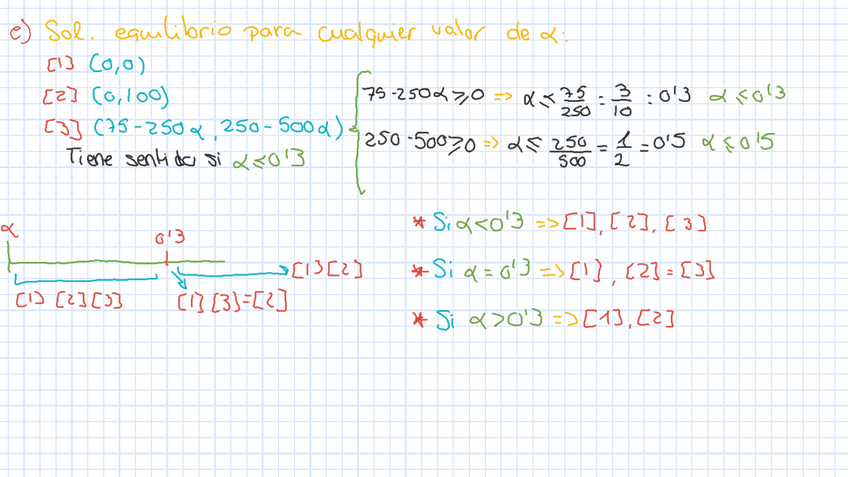 e) Sol. equilibrio para cualquier valor de α:
[1] (0,0)
[2] (0,100)
[3] (75-250α, 250-500α)
Tiene sentido si α≤0'3
75-250α≥0 => α≤75/250=3/10=0'3 α≤0'3
250-500≥0 => α≤250/500=1/2=0'5 α≤0'5
α
0'3
[1] [2] [3]
[1] [3]=[2]
[1] [2]
* Si α<0'3 => [1], [2], [3]
* Si α=0'3 => [1], [2]=[3]
* Si α>0'3 => [1], [2]